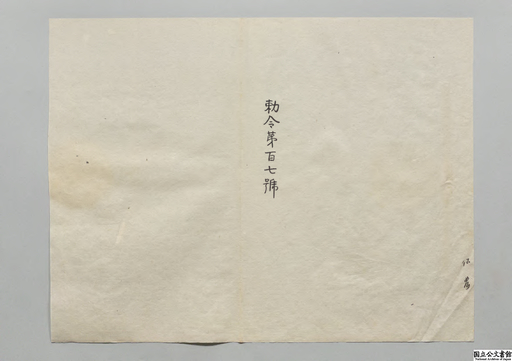 勅令第百七號
国立公文書館
National Archives of Japan